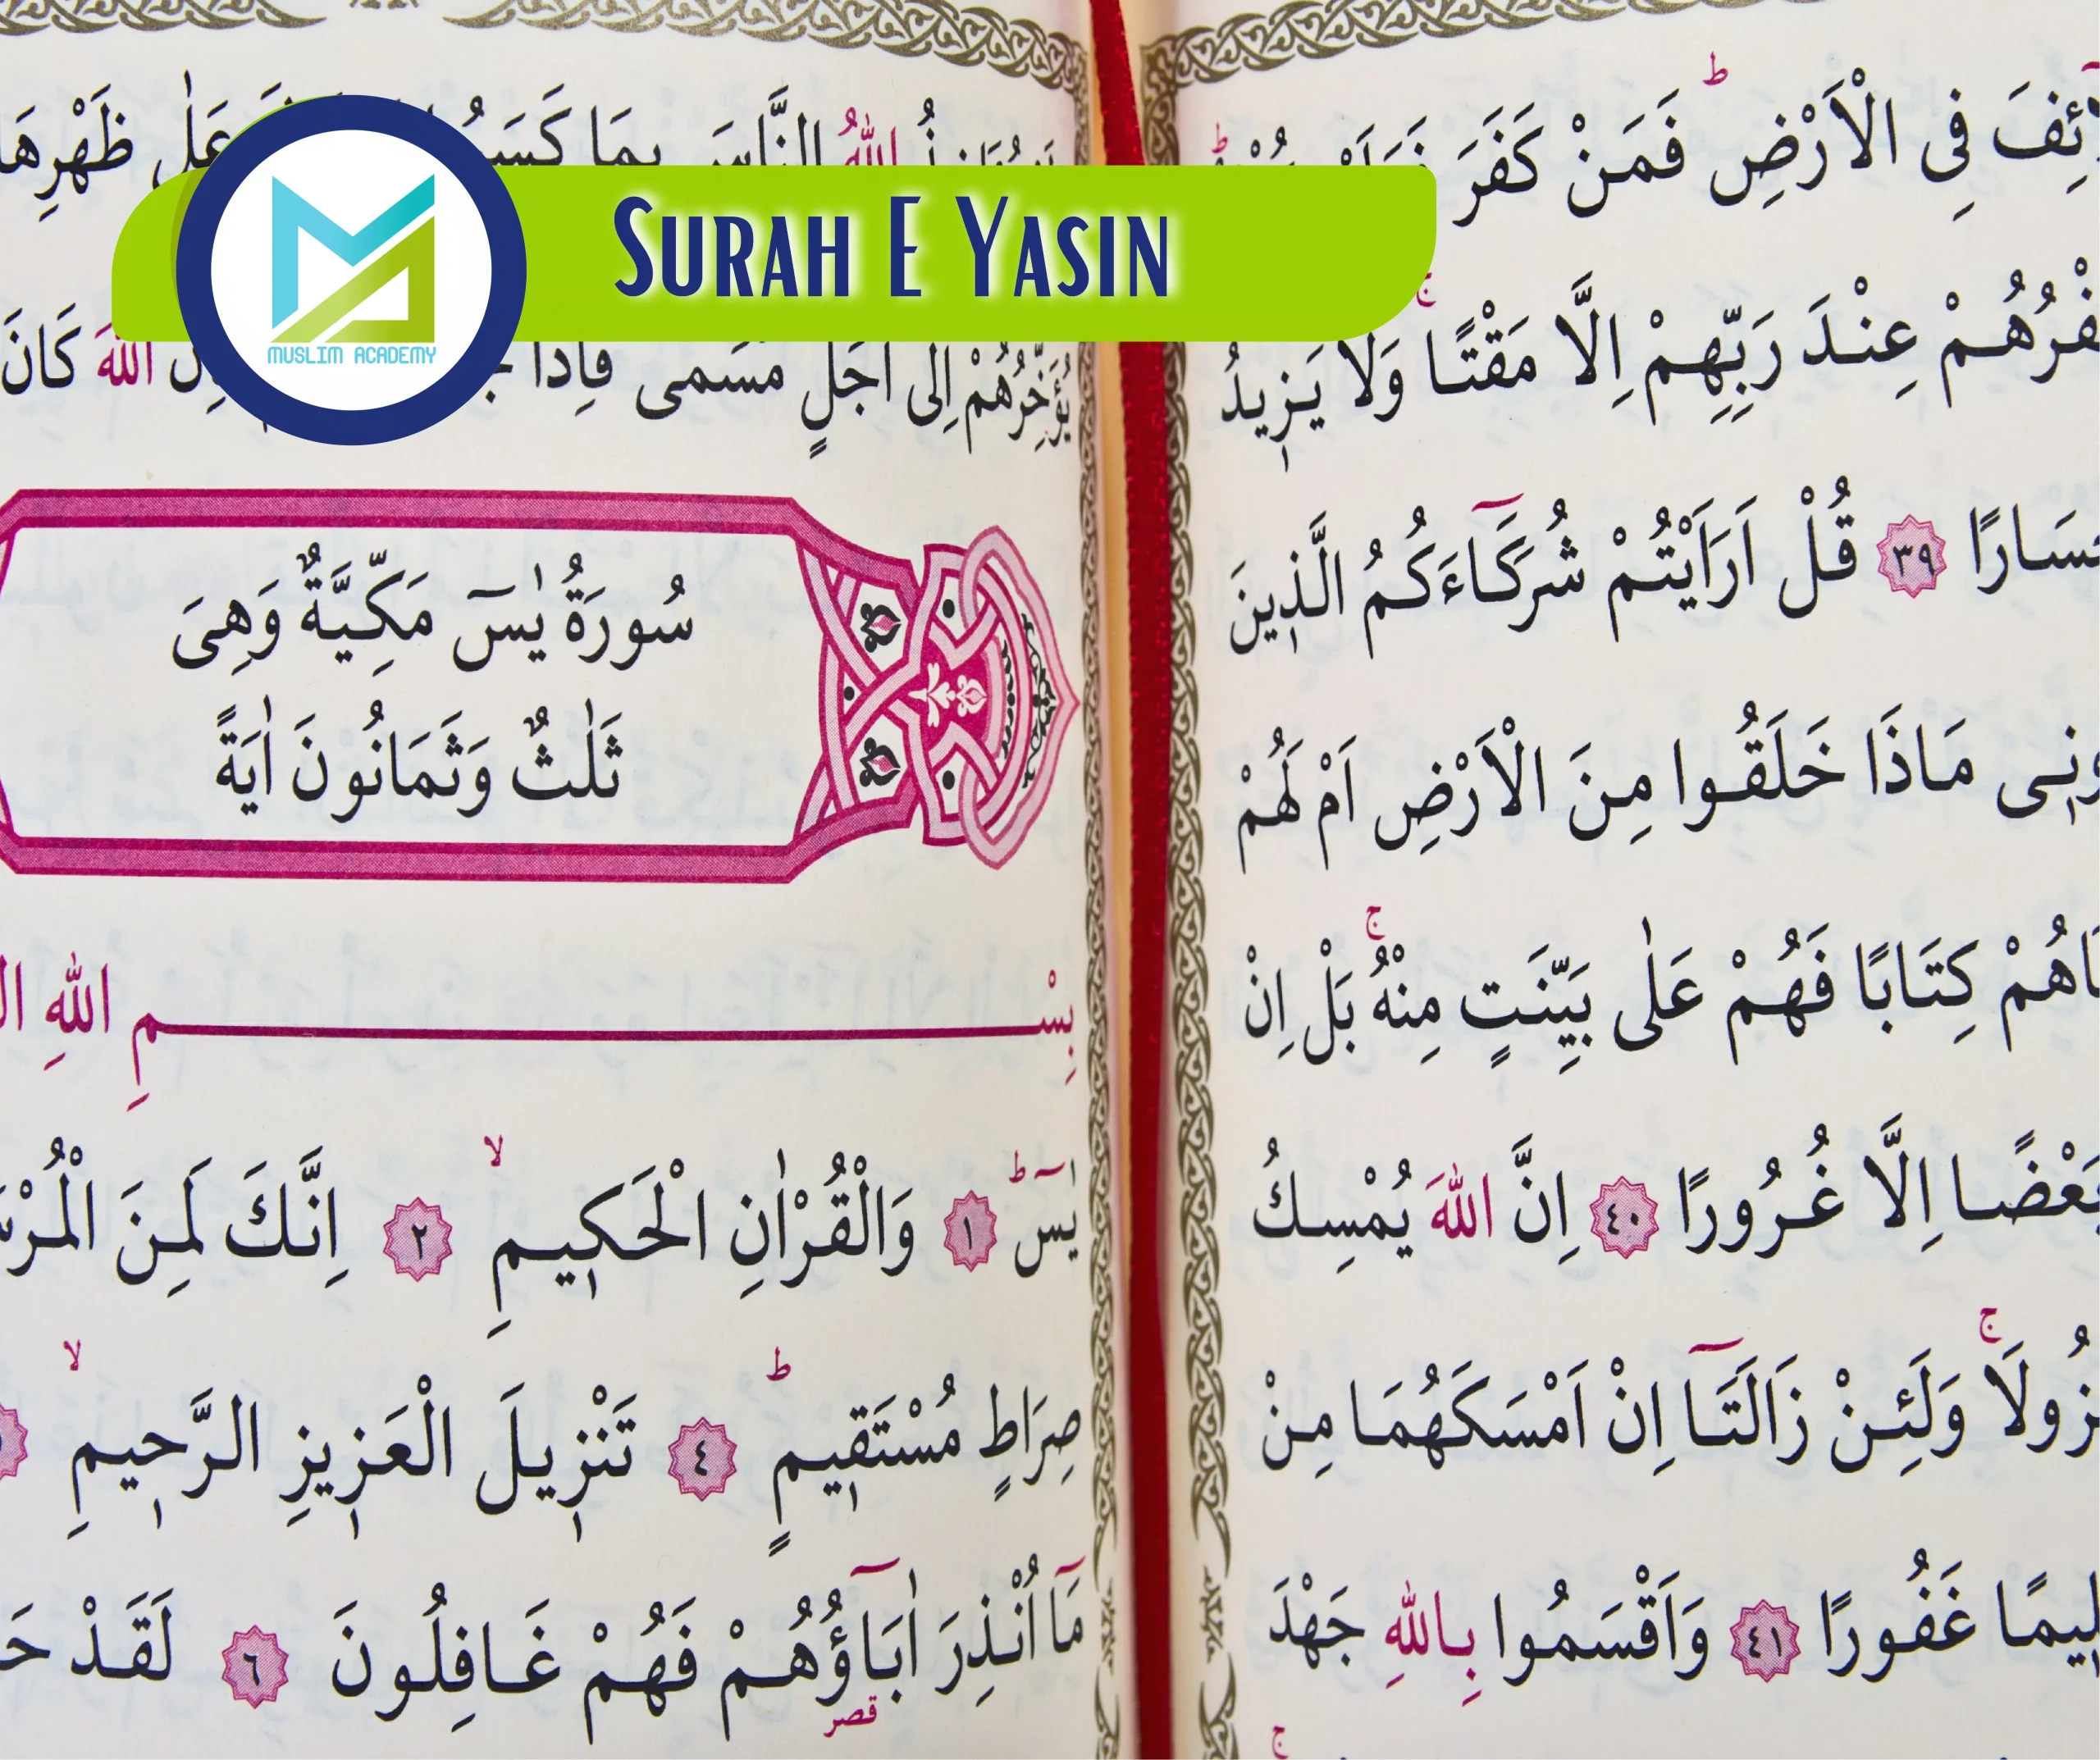 SURAH E YASIN
MUSLIM ACADEMY
ئِفَ فِى الْاَرْضِ فَمَنْ كَفَرَ
عِنْدَ رَبِّهِمْ اِلَّا مَقْتًا وَلَا يَزِيدُ
٣٩ قُلْ اَرَاَيْتُمْ شُرَكَٓاءَكُمُ الَّذِينَ
مَاذَا خَلَقُوا مِنَ الْاَرْضِ اَمْ لَهُمْ
كِتَابًا فَهُمْ عَلٰى بَيِّنَتٍ مِنْهُ بَلْ اِنْ
بَعْضًا اِلَّا غُرُورًا ٤٠ اِنَّ اللّٰهَ يُمْسِكُ
وَلَئِنْ زَالَتَٓا اِنْ اَمْسَكَهُمَا مِنْ
غَفُورًا ٤١ وَاَقْسَمُوا بِاللّٰهِ جَهْدَ
اللّٰهُ النَّاسَ بِمَا عَلٰى ظَهْرِهَا
يُؤَخِّرُهُمْ اِلٰٓى اَجَلٍ مُسَمًّى فَاِذَا اللّٰهَ كَانَ
سُورَةُ يٰسٓ مَكِّيَّةٌ وَهِىَ
ثَلٰثٌ وَثَمَانُونَ اٰيَةً
بِسْمِ اللّٰهِ
يٰسٓ ١ وَالْقُرْاٰنِ الْحَكِيمِ ٢ اِنَّكَ لَمِنَ
صِرَاطٍ مُسْتَقِيمٍ ٤ تَنْزِيلَ الْعَزِيزِ الرَّحِيمِ
مَٓا اُنْذِرَ اٰبَٓاؤُهُمْ فَهُمْ غَافِلُونَ ٦ لَقَدْ
قصر